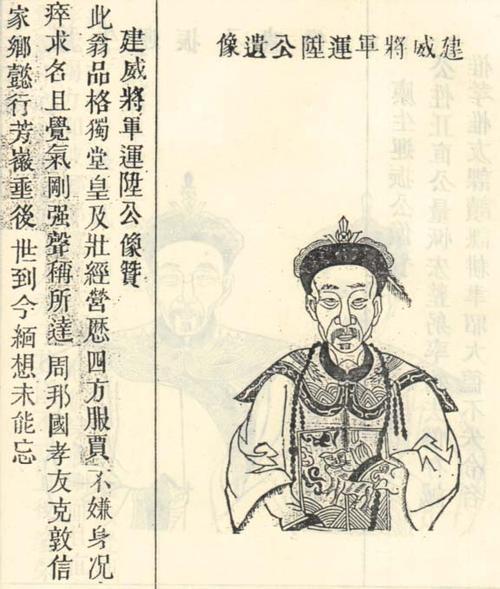 建威將軍運陞公遺像
建威將軍運陞公像贊
此翁品格獨堂皇及壯經營歷四方服賈不嫌身況
瘁求名且覺氣剛强聲稱所達周邦國孝友克敦信
家鄉懿行芳徽垂後世到今緬想未能忘